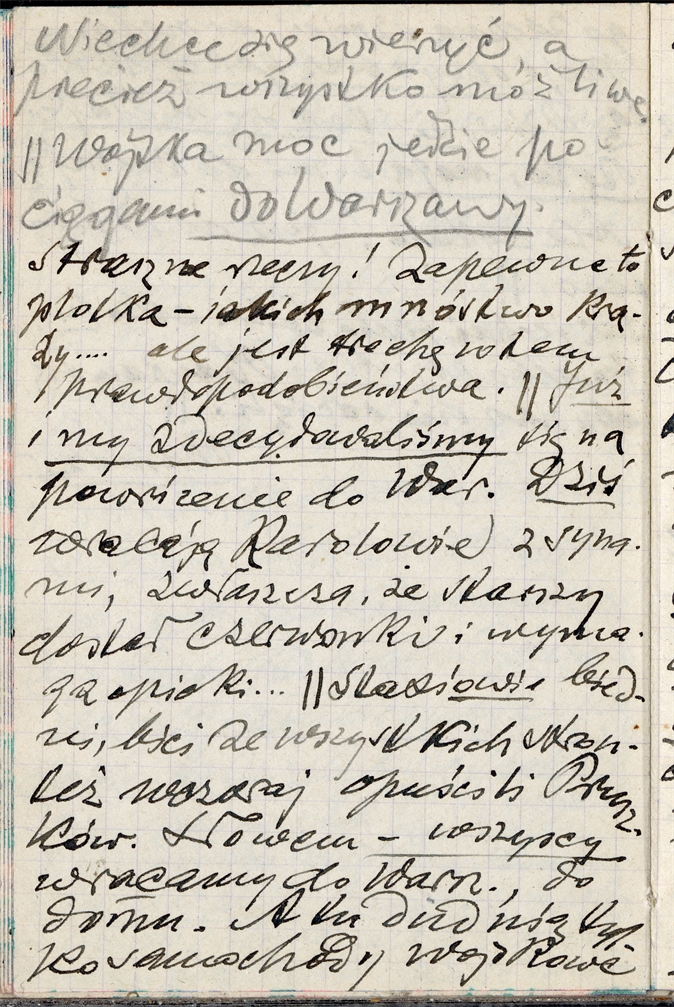 Niechce się wierzyć, a
przecież wszystko możliwe.
|| Wojska moc jedzie po
ciągami do Warszawy.
Straszne rzeczy! Zapewne to
plotka – jakich mnóstwo krą-
ży.... ale jest trochę w tem
prawdopodobieństwa. || Już
i my zdecydowaliśmy się na
powrócenie do War. Dziś
wracają Karolowie z syna-
mi, zwłaszcza, że starszy
dostał czerwonki i wyma-
ga opieki... || Staziowie bied-
ni, bici ze wszystkich stron-
też wczoraj opuścili Prusz-
ków. Słowem – wszyscy
wracamy do Warsz., do
domu. A tu dudnią tyl-
ko samochody wojskowe